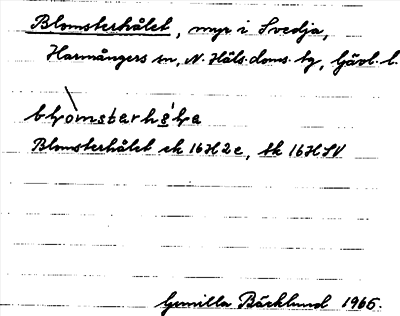 Blomsterhålet, myr i Svedja,
Harmångers sn, N. Häls. doms. tg, Gävl. l.
Blomsterhålet ek 16H2e, tk 16HSV
Gunilla Bäcklund 1965.